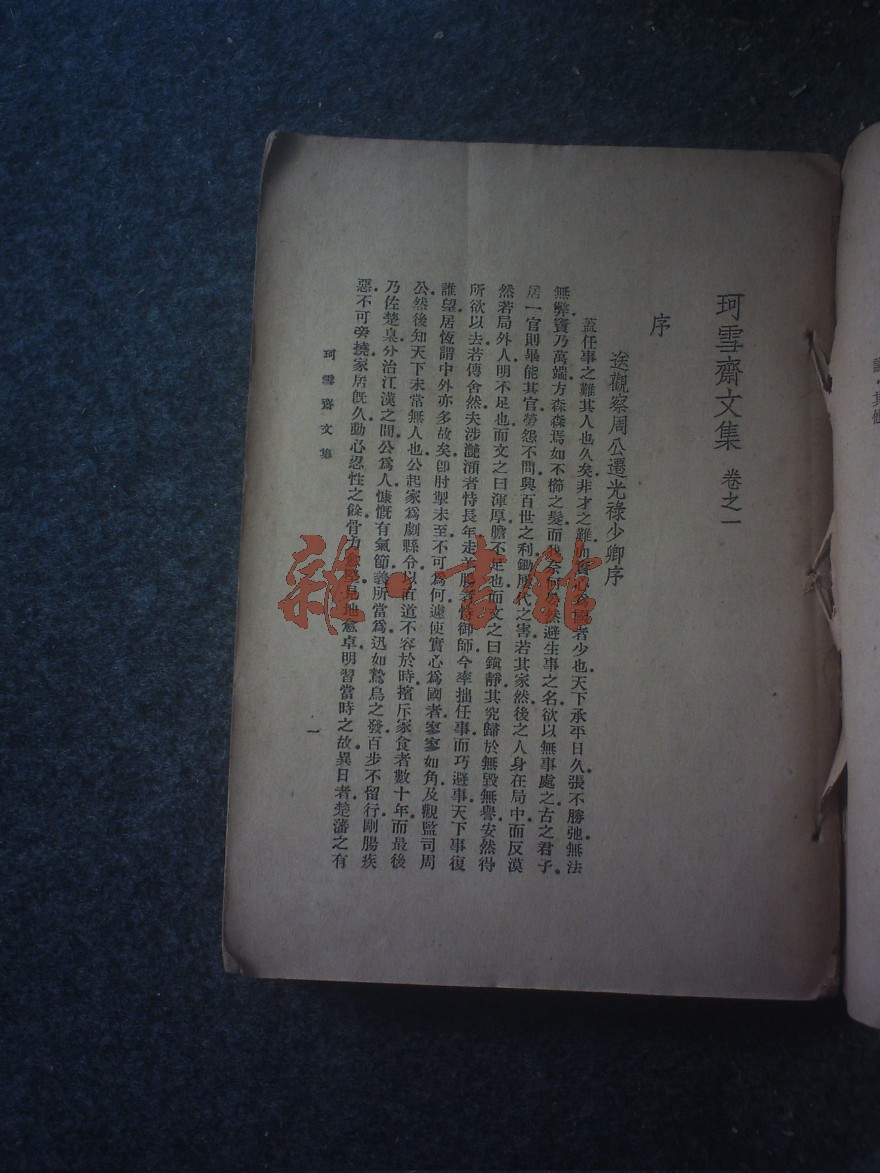 珂雪齋文集 卷之一
序
送觀察周公遷光祿少卿序
蓋任事之難其人也久矣非才之難而實心為國者少也天下承平日久張不勝弛無法
無弊竇乃萬端方森森焉如不櫛之髮而我然避生事之名欲以無事處之古之君子
居一官則畢能其官勞怨不問興百世之利鋤歷代之害若其家然後之人身在局中而反漠
然若局外人明不足也而文之曰渾厚膽不足也而文之曰鎭靜其究歸於無毀無譽安然待
所欲以去若傳舍然夫涉灧澦者恃長年走羊腸者恃御師今率拙任事而巧避事天下事復
誰望居恆謂中外亦多故矣卽肘掣未至不可為何遽使實心為國者寥寥如角及觀監司周
公然後知天下未常無人也公起家為劇縣令以直道不容於時擯斥家食者數十年而最後
乃佐楚臬分治江漢之間公為人慷慨有氣節義所當為迅如鷙鳥之發百步不留行剛腸疾
惡不可旁撓家居旣久動心忍性之餘骨力見地愈卓明習當時之故異日者楚藩之有
珂雪齋文集
一
雜·書館